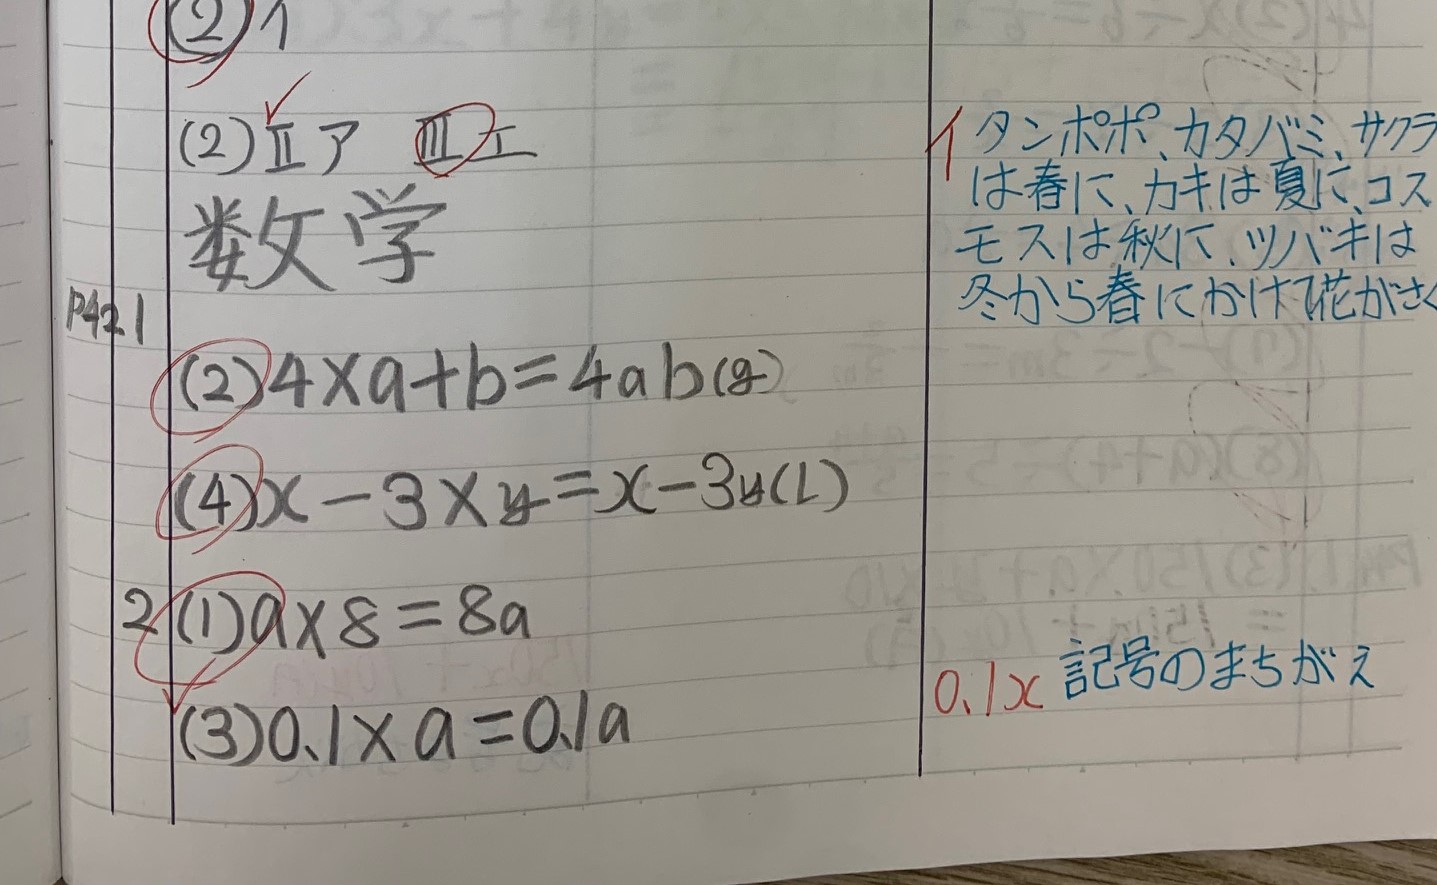 (2)イ
(2)Ⅱア Ⅲエ
イ タンポポ、カタバミ、サクラ
は春に、カキは夏に、コス
モスは秋に、ツバキは
冬から春にかけて花がさく
数学
P42.1
(2)4×a+b=4ab(g)
(4)x-3×y=x-3y(L)
2(1)a×8=8a
(3)0.1×a=0.1a
0.1x 記号のまちがえ